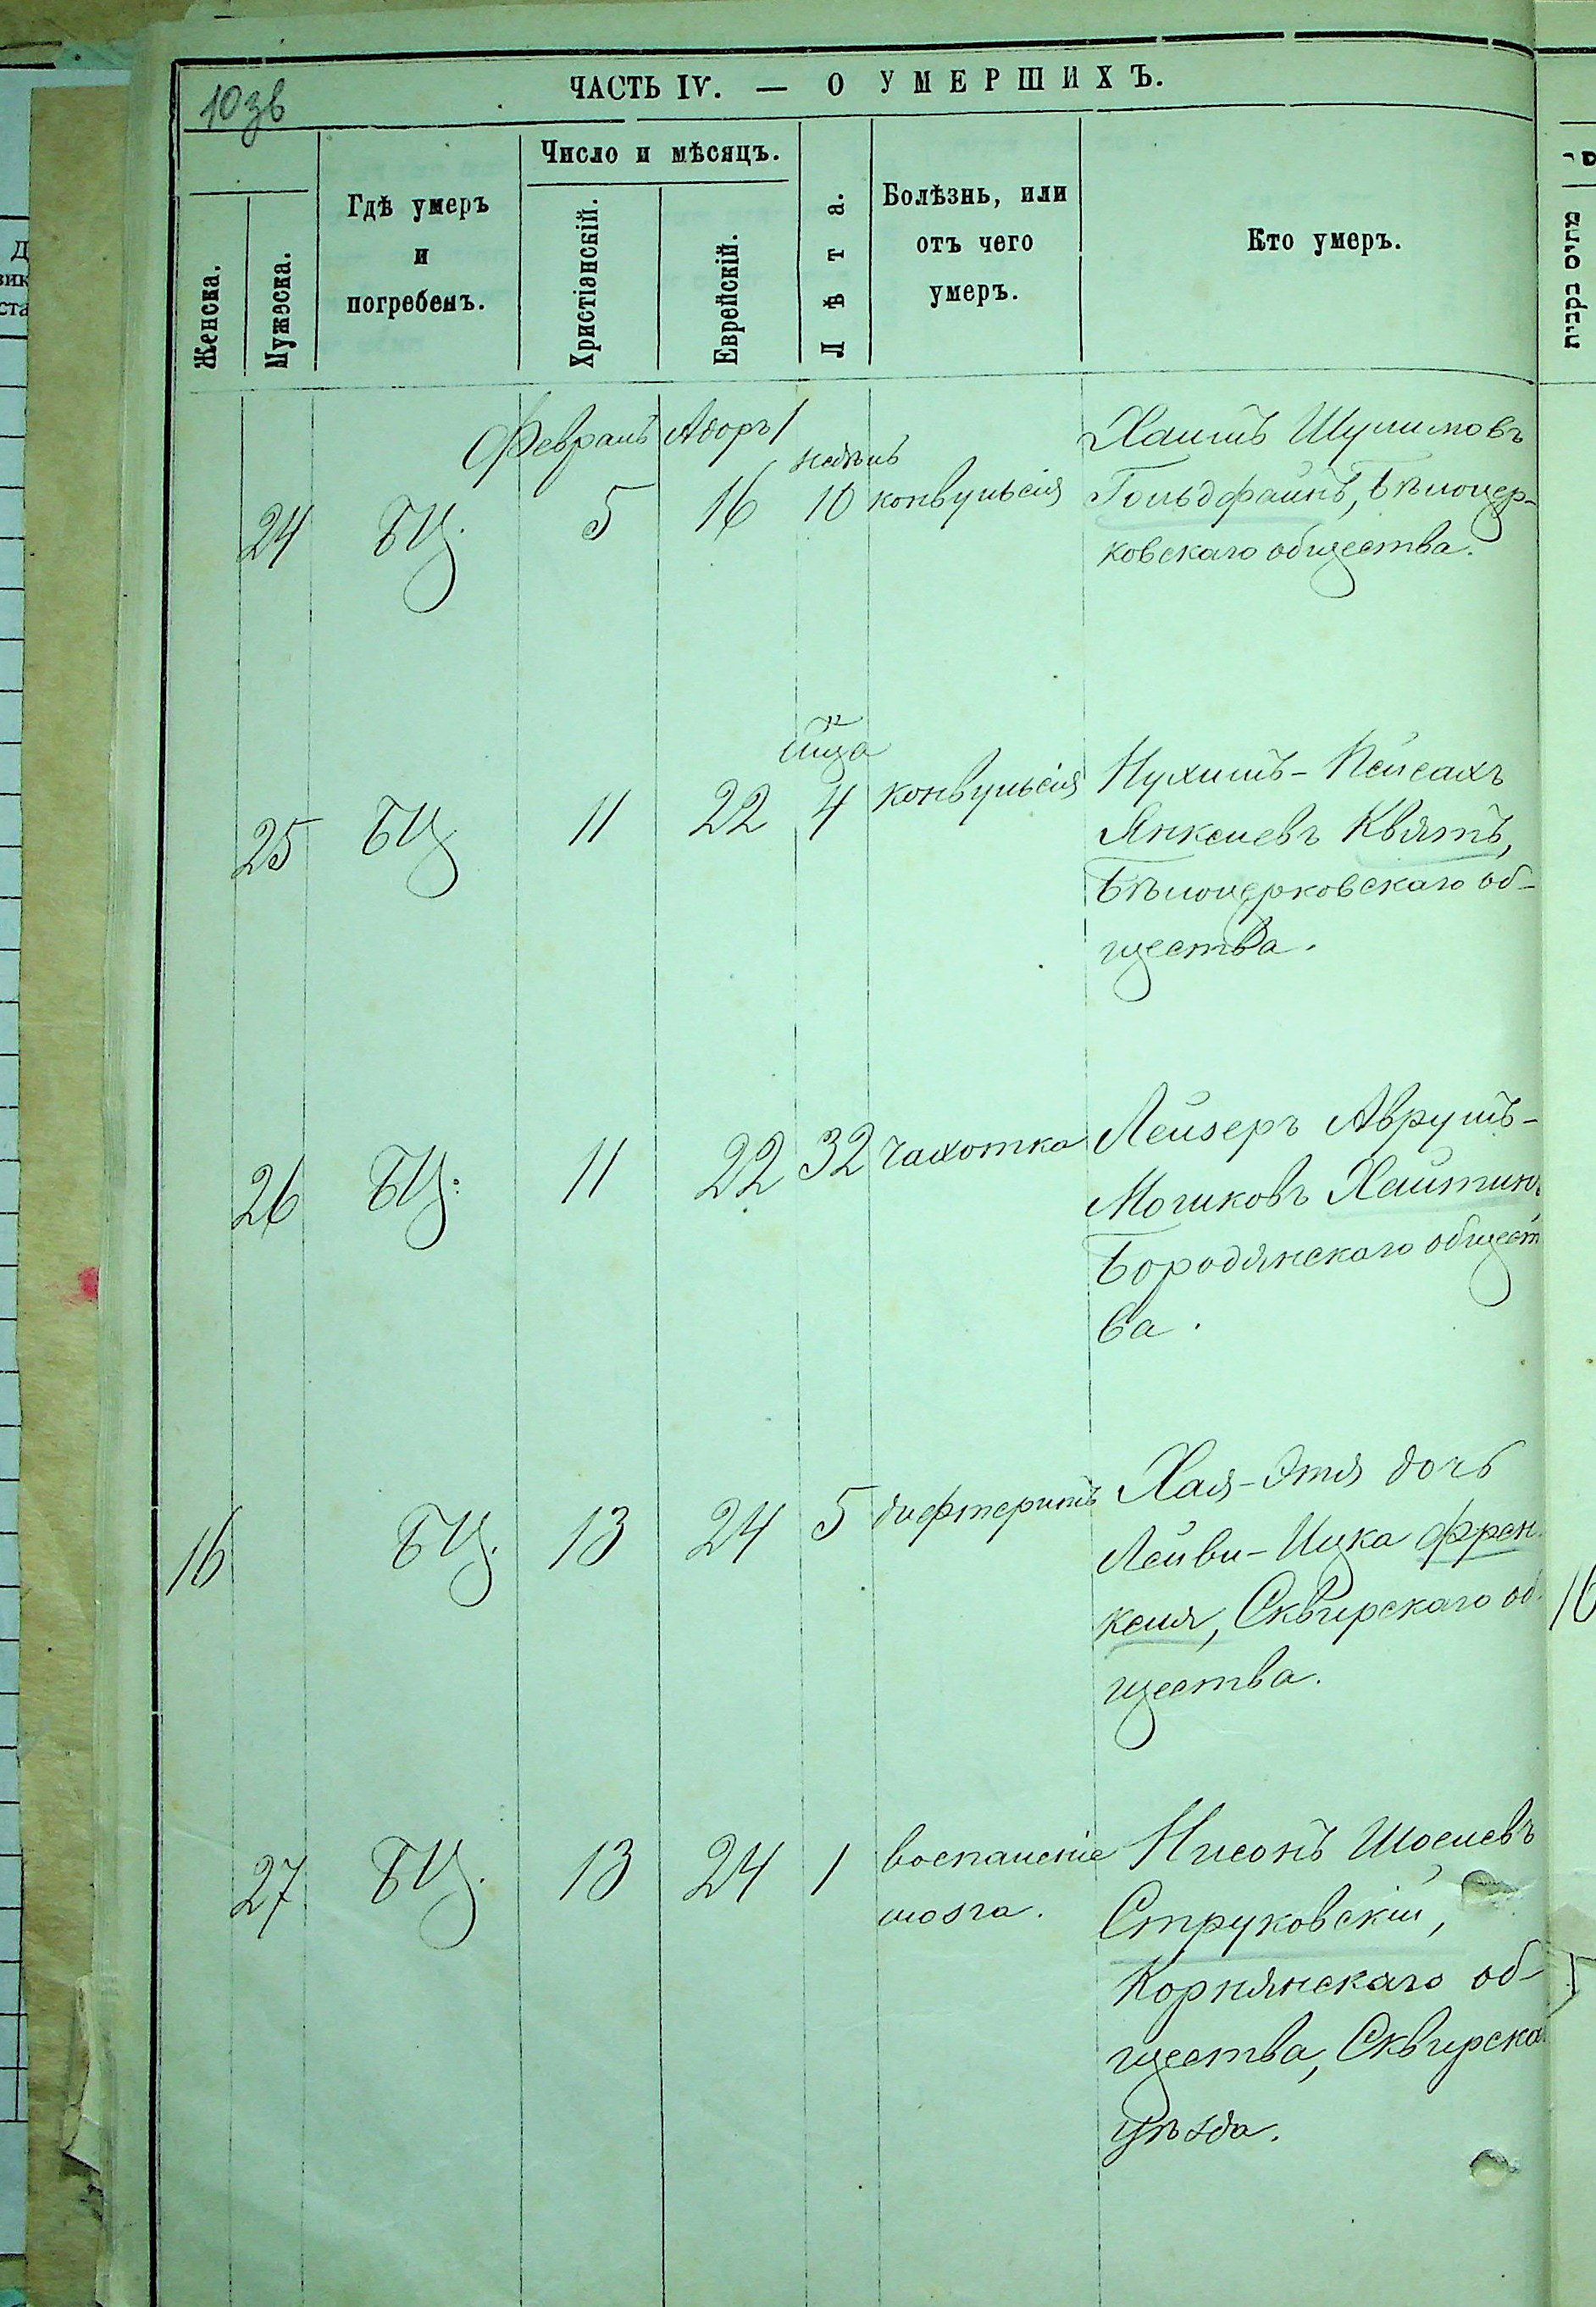 10зв
ЧАСТЬ IV. — О УМЕРШИХЪ.
Женска.
Мужеска.
Гдѣ умеръ
и
погребенъ.
Число и мѣсяцъ.
Христіанскій.
Еврейскій.
Лѣта.
Болѣзнь, или
отъ чего
умеръ.
Кто умеръ.
Февраль Адоръ 1
24 БЦ. 5 16 10 недѣль конвульсія
Хаимъ Шулимовъ
Гольдфайнъ, Бѣлоцер-
ковскаго общества.
25 БЦ 11 22 4 м-ца конвульсія
Нухимъ-Пейсахъ
Янкелевъ Квятъ,
Бѣлоцерковскаго об-
щества.
26 БЦ. 11 22 32 чахотка
Лейзеръ Аврумъ-
Мошковъ
Бородянскаго общест
ва.
16 БЦ. 13 24 5 дифтеритъ
Хая-Этя дочь
Лейви-Ицка Френ
келя, Сквирскаго об
щества.
27 БЦ. 13 24 1 воспаленіе
мозга.
Нисонъ Шоелевъ
Струковскій,
Корнянскаго об-
щества, Сквирска
уѣзда.